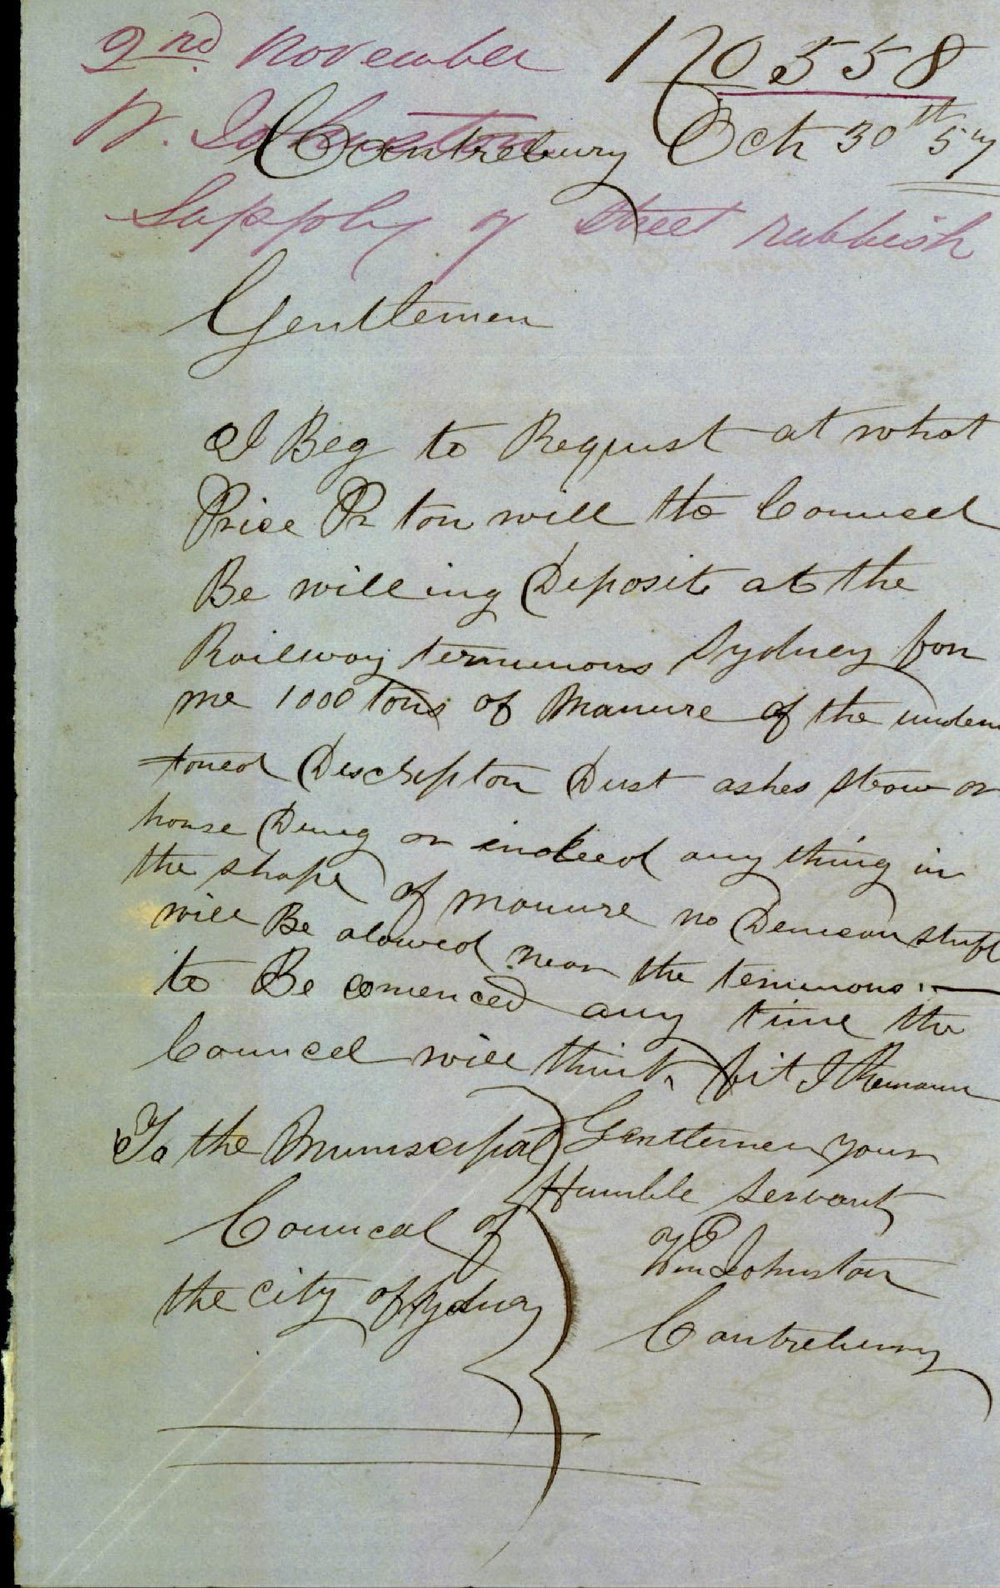 2nd November
170558
W. Johnston
Cantrebury Oct 30th 57
Supply of Street rubbish
Gentlemen
I Beg to Request at what
Price Pr ton will the Councel
Be willing Deposit at the
Railway termunous Sydney for
me 1000 tons of Manure of the unden
toned Descripton Dust ashes straw or
horse Dung or indeed any thing in
the shape of manure no Demean stuff
will Be alowed near the terminous. —
to Be comenced any time the
Councel will think fit I Remain
Gentlemen your
Humble Servant
Wm Johnston
Cantrebury
To the Municipal
Councal of
the city of Sydney